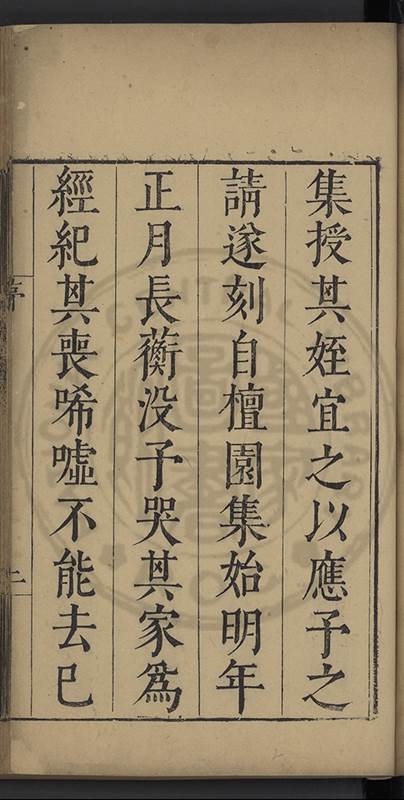 集授其姪宜之以應予之
請遂刻自檀園集始明年
正月長蘅没予哭其家爲
經紀其喪唏噓不能去已